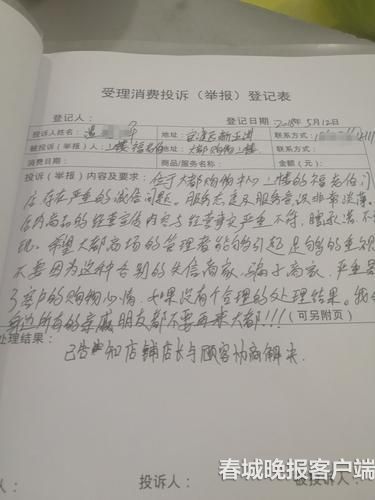 受理消费投诉（举报）登记表
登记人： 登记日期 2018年5月12日
投诉人姓名： 地址： 联系方式：
被投诉（举报）人：上楼福老伯 地址：大都购物上楼 联系方式：
消费日期： 商品/服务名称： 金额（元）：
投诉（举报）内容及要求：位于大都购物中心上楼的福老伯门
店存在严重的诚信问题。服务态度及服务意识非常淡薄。
店内商品的轻重宣传内容与经营事实严重不符，
现。希望大都商场的管理者能够引起足够的重视
不要因为这种个别的失信商家，骗子商家，严重影
了客户的购物心情，如果没有合理的处理结果。我会
身边所有的亲戚朋友都不要再来大都!!! （可另附页）
处理结果：
已告知店铺店长与顾客协商解决.
投诉人： 被投诉人：
春城晚报客户端